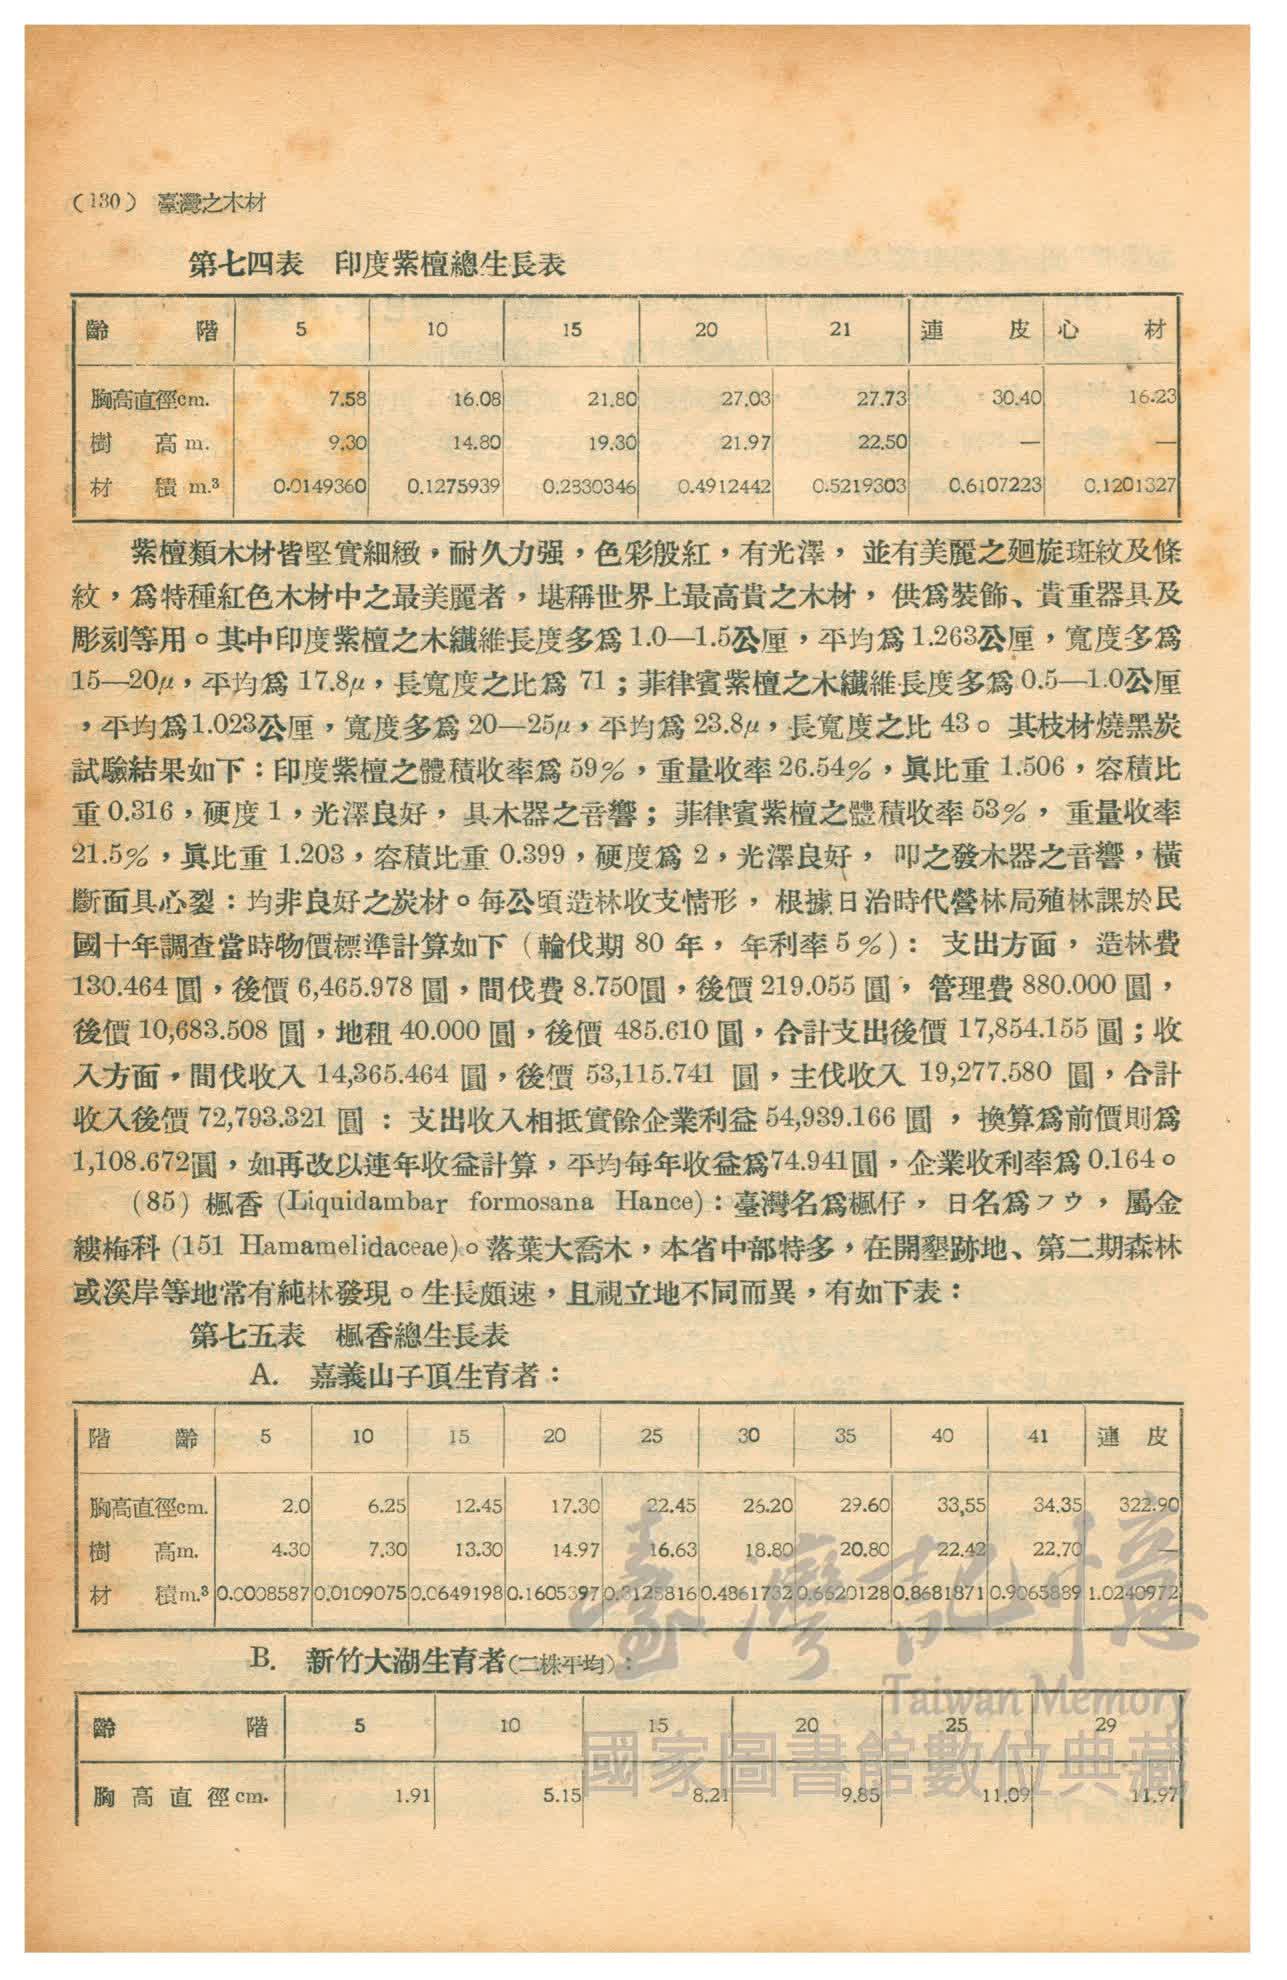 (130) 臺灣之木材
第七四表　印度紫檀總生長表
齡階 5 10 15 20 21 連皮 心材
胸高直徑cm. 7.58 16.08 21.80 27.03 27.73 30.40 16.23
樹高m. 9.30 14.80 19.30 21.97 22.50 — —
材積m.³ 0.0149360 0.1275939 0.2830346 0.4912442 0.5219303 0.6107223 0.1201327
紫檀類木材皆堅實細緻，耐久力强，色彩殷紅，有光澤，並有美麗之廻旋斑紋及條
紋，爲特種紅色木材中之最美麗者，堪稱世界上最高貴之木材，供爲裝飾、貴重器具及
彫刻等用。其中印度紫檀之木纖維長度多爲1.0—1.5公厘，平均爲1.263公厘，寬度多爲
15—20μ，平均爲17.8μ，長寬度之比爲 71；菲律賓紫檀之木纖維長度多爲0.5—1.0公厘
，平均爲1.023公厘，寬度多爲20—25μ，平均爲23.8μ，長寬度之比43。其枝材燒黑炭
試驗結果如下：印度紫檀之體積收率爲59%，重量收率26.54%，眞比重1.506，容積比
重0.316，硬度1，光澤良好，具木器之音響；菲律賓紫檀之體積收率53%，重量收率
21.5%，眞比重1.203，容積比重0.399，硬度爲2，光澤良好，叩之發木器之音響，橫
斷面具心裂：均非良好之炭材。每公頃造林收支情形，根據日治時代營林局殖林課於民
國十年調查當時物價標準計算如下（輪伐期80年，年利率5%）：支出方面，造林費
130.464圓，後價6,465.978圓，間伐費8.750圓，後價219.055圓，管理費880.000圓，
後價10,683.508圓，地租40.000圓，後價485.610圓，合計支出後價17,854.155圓；收
入方面，間伐收入14,365.464圓，後價53,115.741圓，主伐收入19,277.580圓，合計
收入後價72,793.321圓：支出收入相抵實餘企業利益54,939.166圓，換算爲前價則爲
1,108.672圓，如再改以連年收益計算，平均每年收益爲74.941圓，企業收利率爲0.164。
(85) 楓香 (Liquidambar formosana Hance)：臺灣名爲楓仔，日名爲フウ，屬金
縷梅科 (151 Hamamelidaceae)。落葉大喬木，本省中部特多，在開墾跡地、第二期森林
或溪岸等地常有純林發現。生長頗速，且視立地不同而異，有如下表：
第七五表　楓香總生長表
A.　嘉義山子頂生育者：
階齡 5 10 15 20 25 30 35 40 41 連皮
胸高直徑cm. 2.0 6.25 12.45 17.30 22.45 26.20 29.60 33,55 34.35 322.90
樹高m. 4.30 7.30 13.30 14.97 16.63 18.80 20.80 22.42 22.70 —
材積m.³ 0.0008587 0.0109075 0.0649198 0.1605397 0.3125816 0.4861732 0.6620128 0.8681871 0.9065889 1.0240972
B.　新竹大湖生育者（二株平均）：
齡階 5 10 15 20 25 29
胸高直徑cm. 1.91 5.15 8.21 9.85 11.09 11.97
臺灣記憶
Taiwan Memory
國家圖書館數位典藏